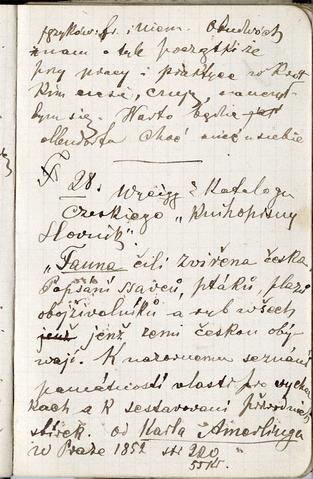 języków: fr. i niem. Obudwóch
znam o tyle początki że
przy pracy i praktyce w krót
kim czasie, czuję, nauczył
bym się. Warto będzie
Ollendorfa choć mieć u siebie
28. Wyciąg z Katalogu
Czeskiego „Knihopisny
Slovnik".
„Fauna čili zvířena česka.
Popsání ssavců, ptáků, plazů
obojživalníků a ryb všech
jenž jenž zemi českou obý-
vají. K názornému seznání
památností vlasti pro vycház
kách a k sestavování přírodních
sbírek. od Karla Amerlinga
w Praze 1852 str 220
55 Kr.